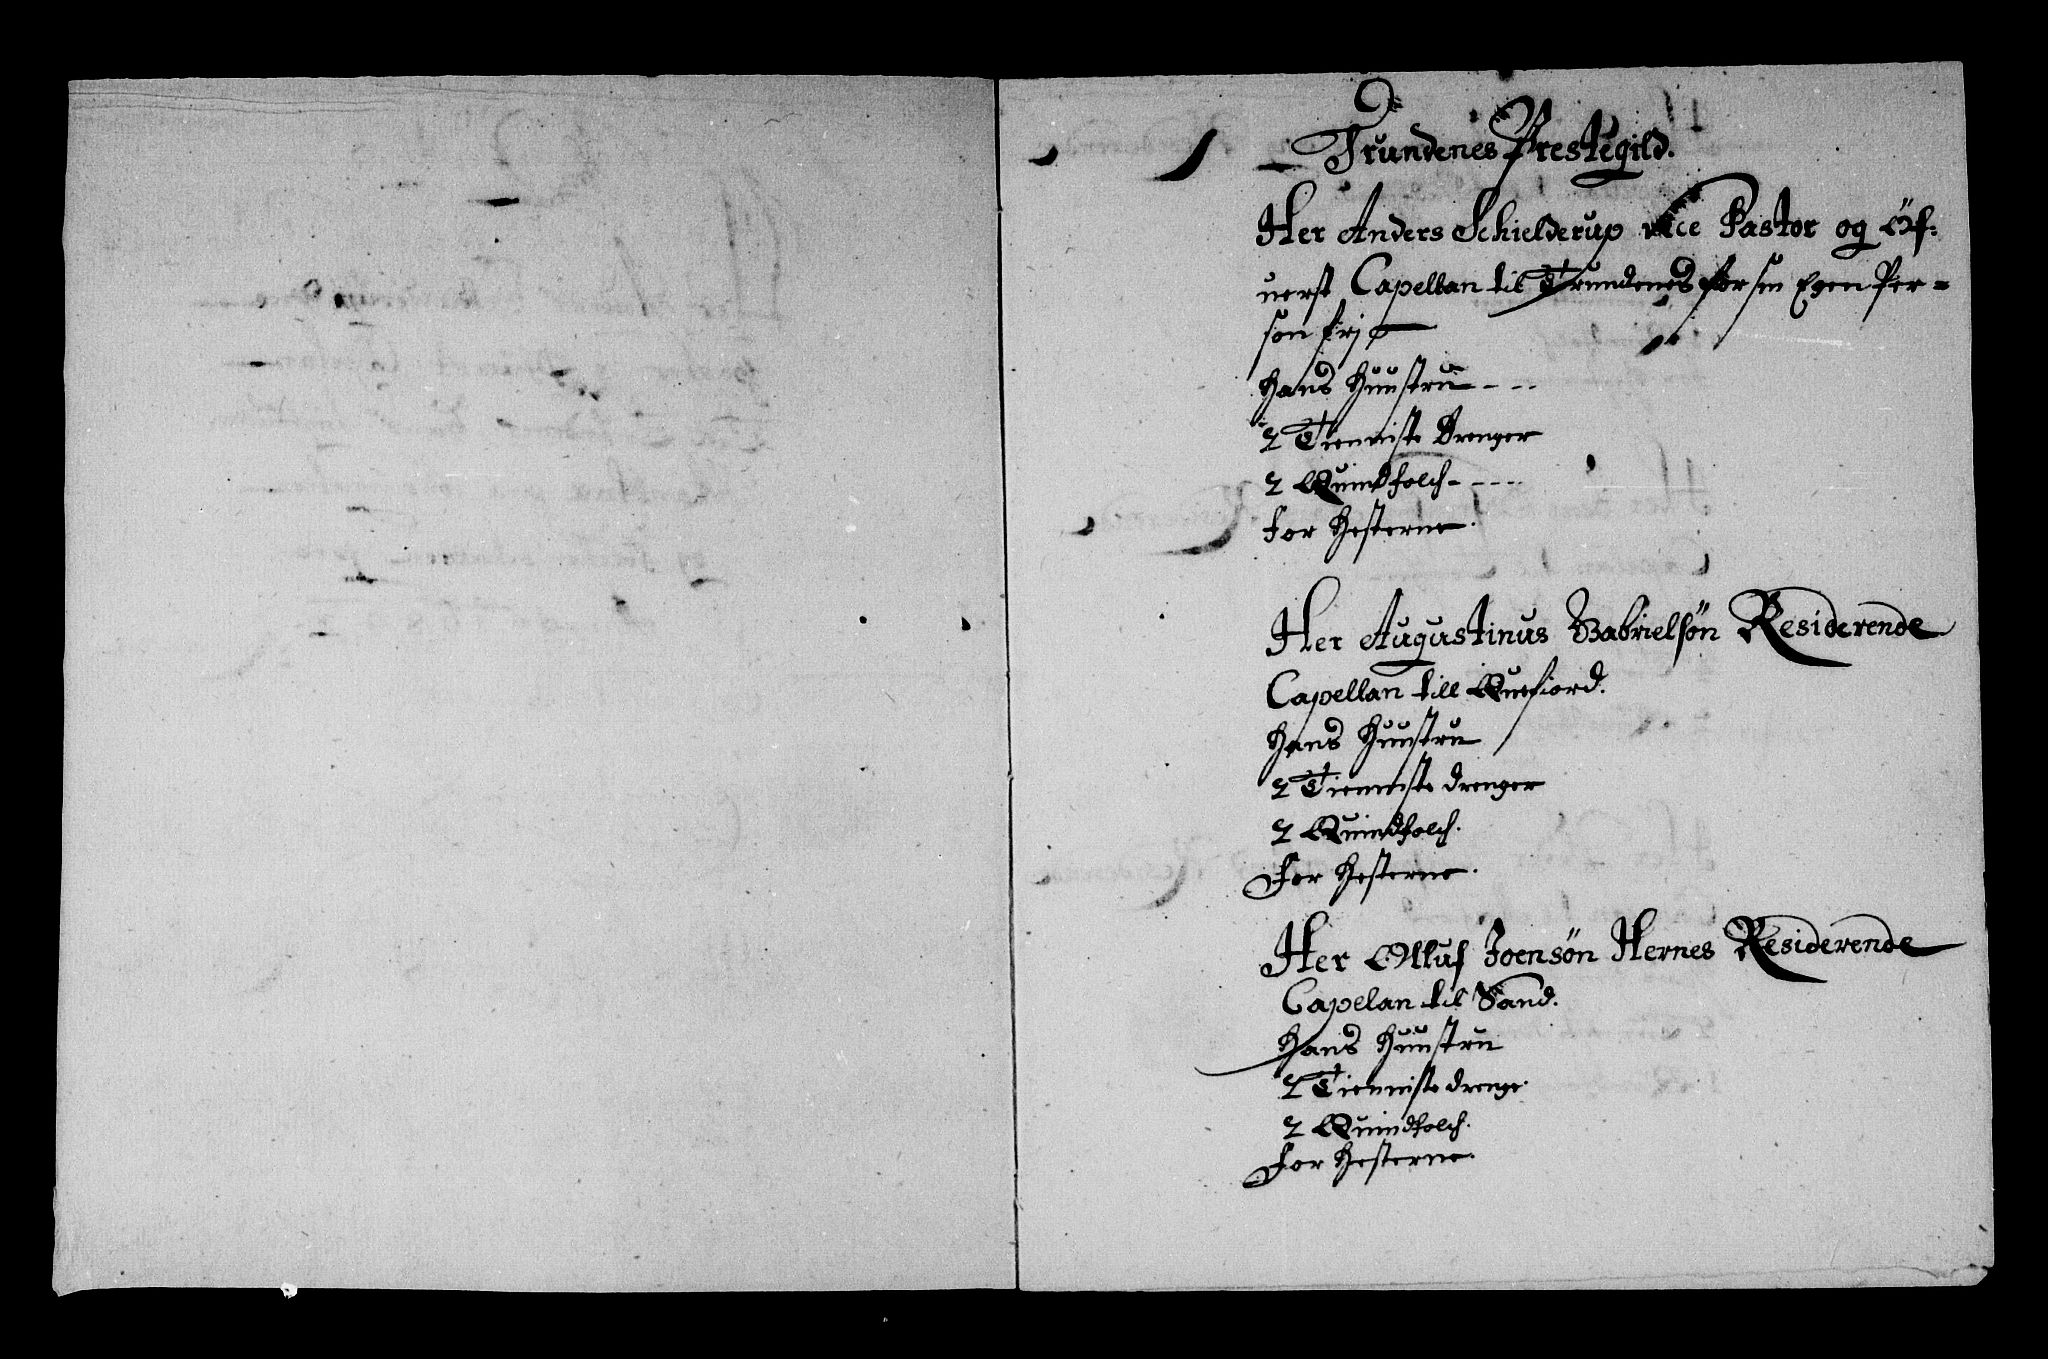 Trundenes Prestegild.
Her Anders Schielderup vice Pastor og Öf-
uerst Capellan til Trundenes for sin Egen Per-
son frj
Hans Huustru
2 Tienniste Drenger
2 Quindfolch
For Hesterne.
Her Augustinus Gabrielsön Residerende
Capellan till Quefiord.
Hans Huustru
2 Tienniste drenger
2 Quindfolch.
For Hesterne.
Her Olluf Joensön Hernes Residerende
Capelan til Sand.
Hans Huustru
2 Tienniste drenge.
2 Quindfolch.
For Hesterne.